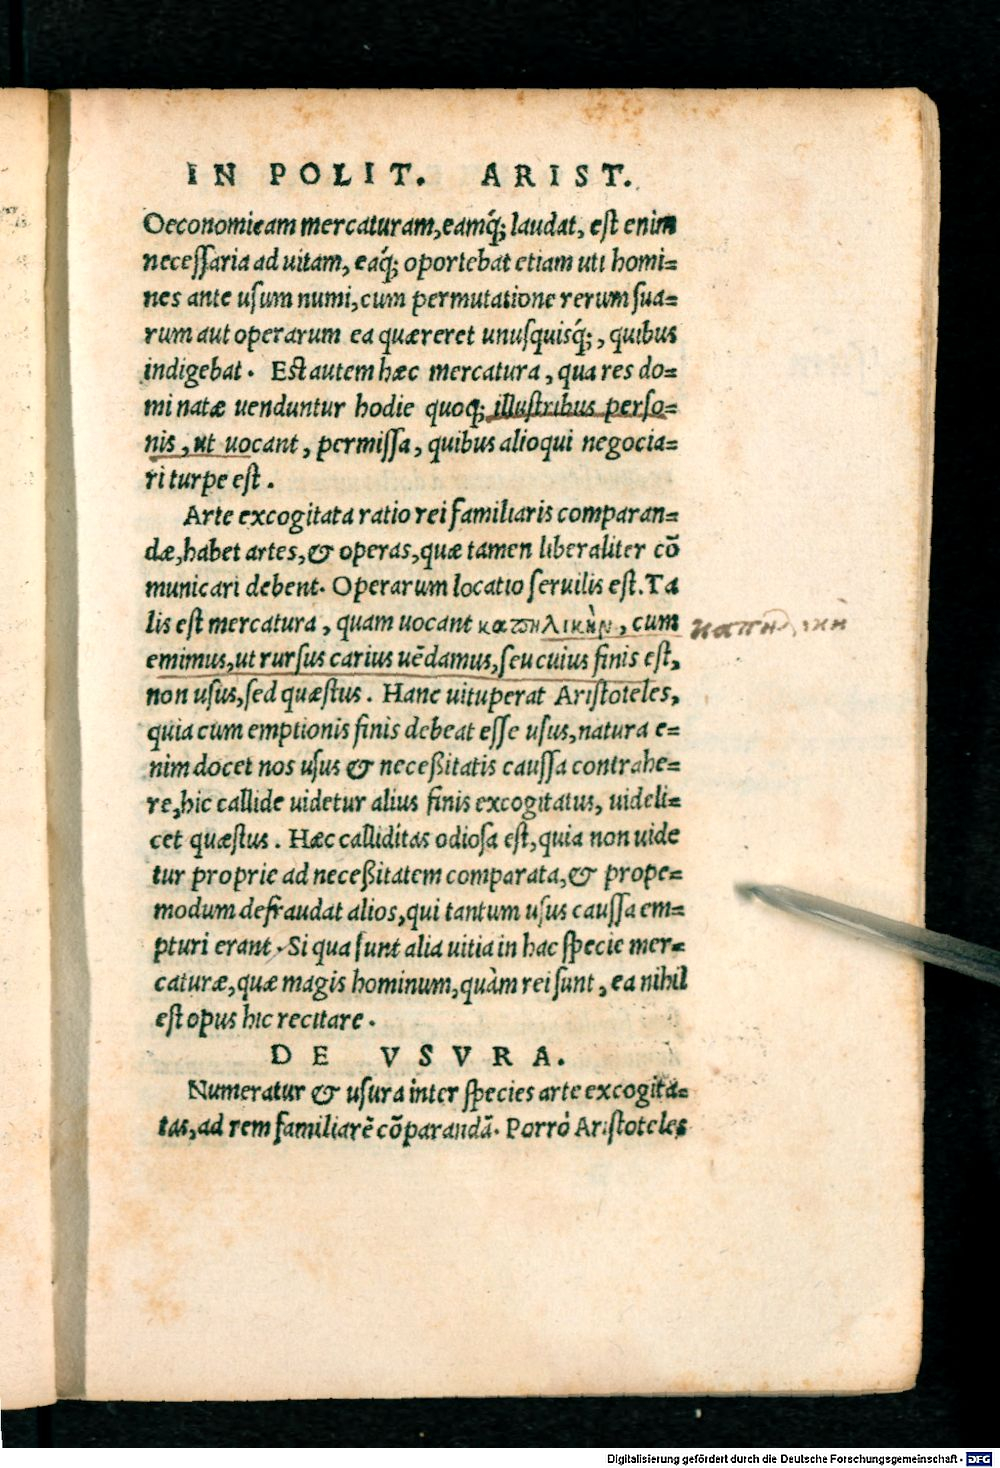 IN POLIT. ARIST.
Oeconomicam mercaturam, eamq́; laudat, est enim
necessaria ad uitam, eaq́; oportebat etiam uti homi=
nes ante usum numi, cum permutatione rerum sua=
rum aut operarum ea quæreret unusquisq́;, quibus
indigebat. Est autem hæc mercatura, qua res do=
mi natæ uenduntur hodie quoq; illustribus perso=
nis, ut uocant, permissa, quibus alioqui negocia=
ri turpe est.
Arte excogitata ratio rei familiaris comparan=
dæ, habet artes, & operas, quæ tamen liberaliter cō
municari debent. Operarum locatio seruilis est. Ta
lis est mercatura, quam uocant καπηλικὴν, cum
καπηλικὴ
emimus, ut rursus carius uēdamus, seu cuius finis est,
non usus, sed quæstus. Hanc uituperat Aristoteles,
quia cum emptionis finis debeat esse usus, natura e=
nim docet nos usus & neceßitatis caussa contrahe=
re, hic callide uidetur alius finis excogitatus, uideli=
cet quæstus. Hæc calliditas odiosa est, quia non uide
tur proprie ad neceßitatem comparata, & prope=
modum defraudat alios, qui tantum usus caussa em=
pturi erant. Si qua sunt alia uitia in hac specie mer=
caturæ, quæ magis hominum, quàm rei sunt, ea nihil
est opus hic recitare.
DE VSVRA.
Numeratur & usura inter species arte excogita=
tas, ad rem familiarē cōparandā. Porrò Aristoteles
Digitalisierung gefördert durch die Deutsche Forschungsgemeinschaft - DFG